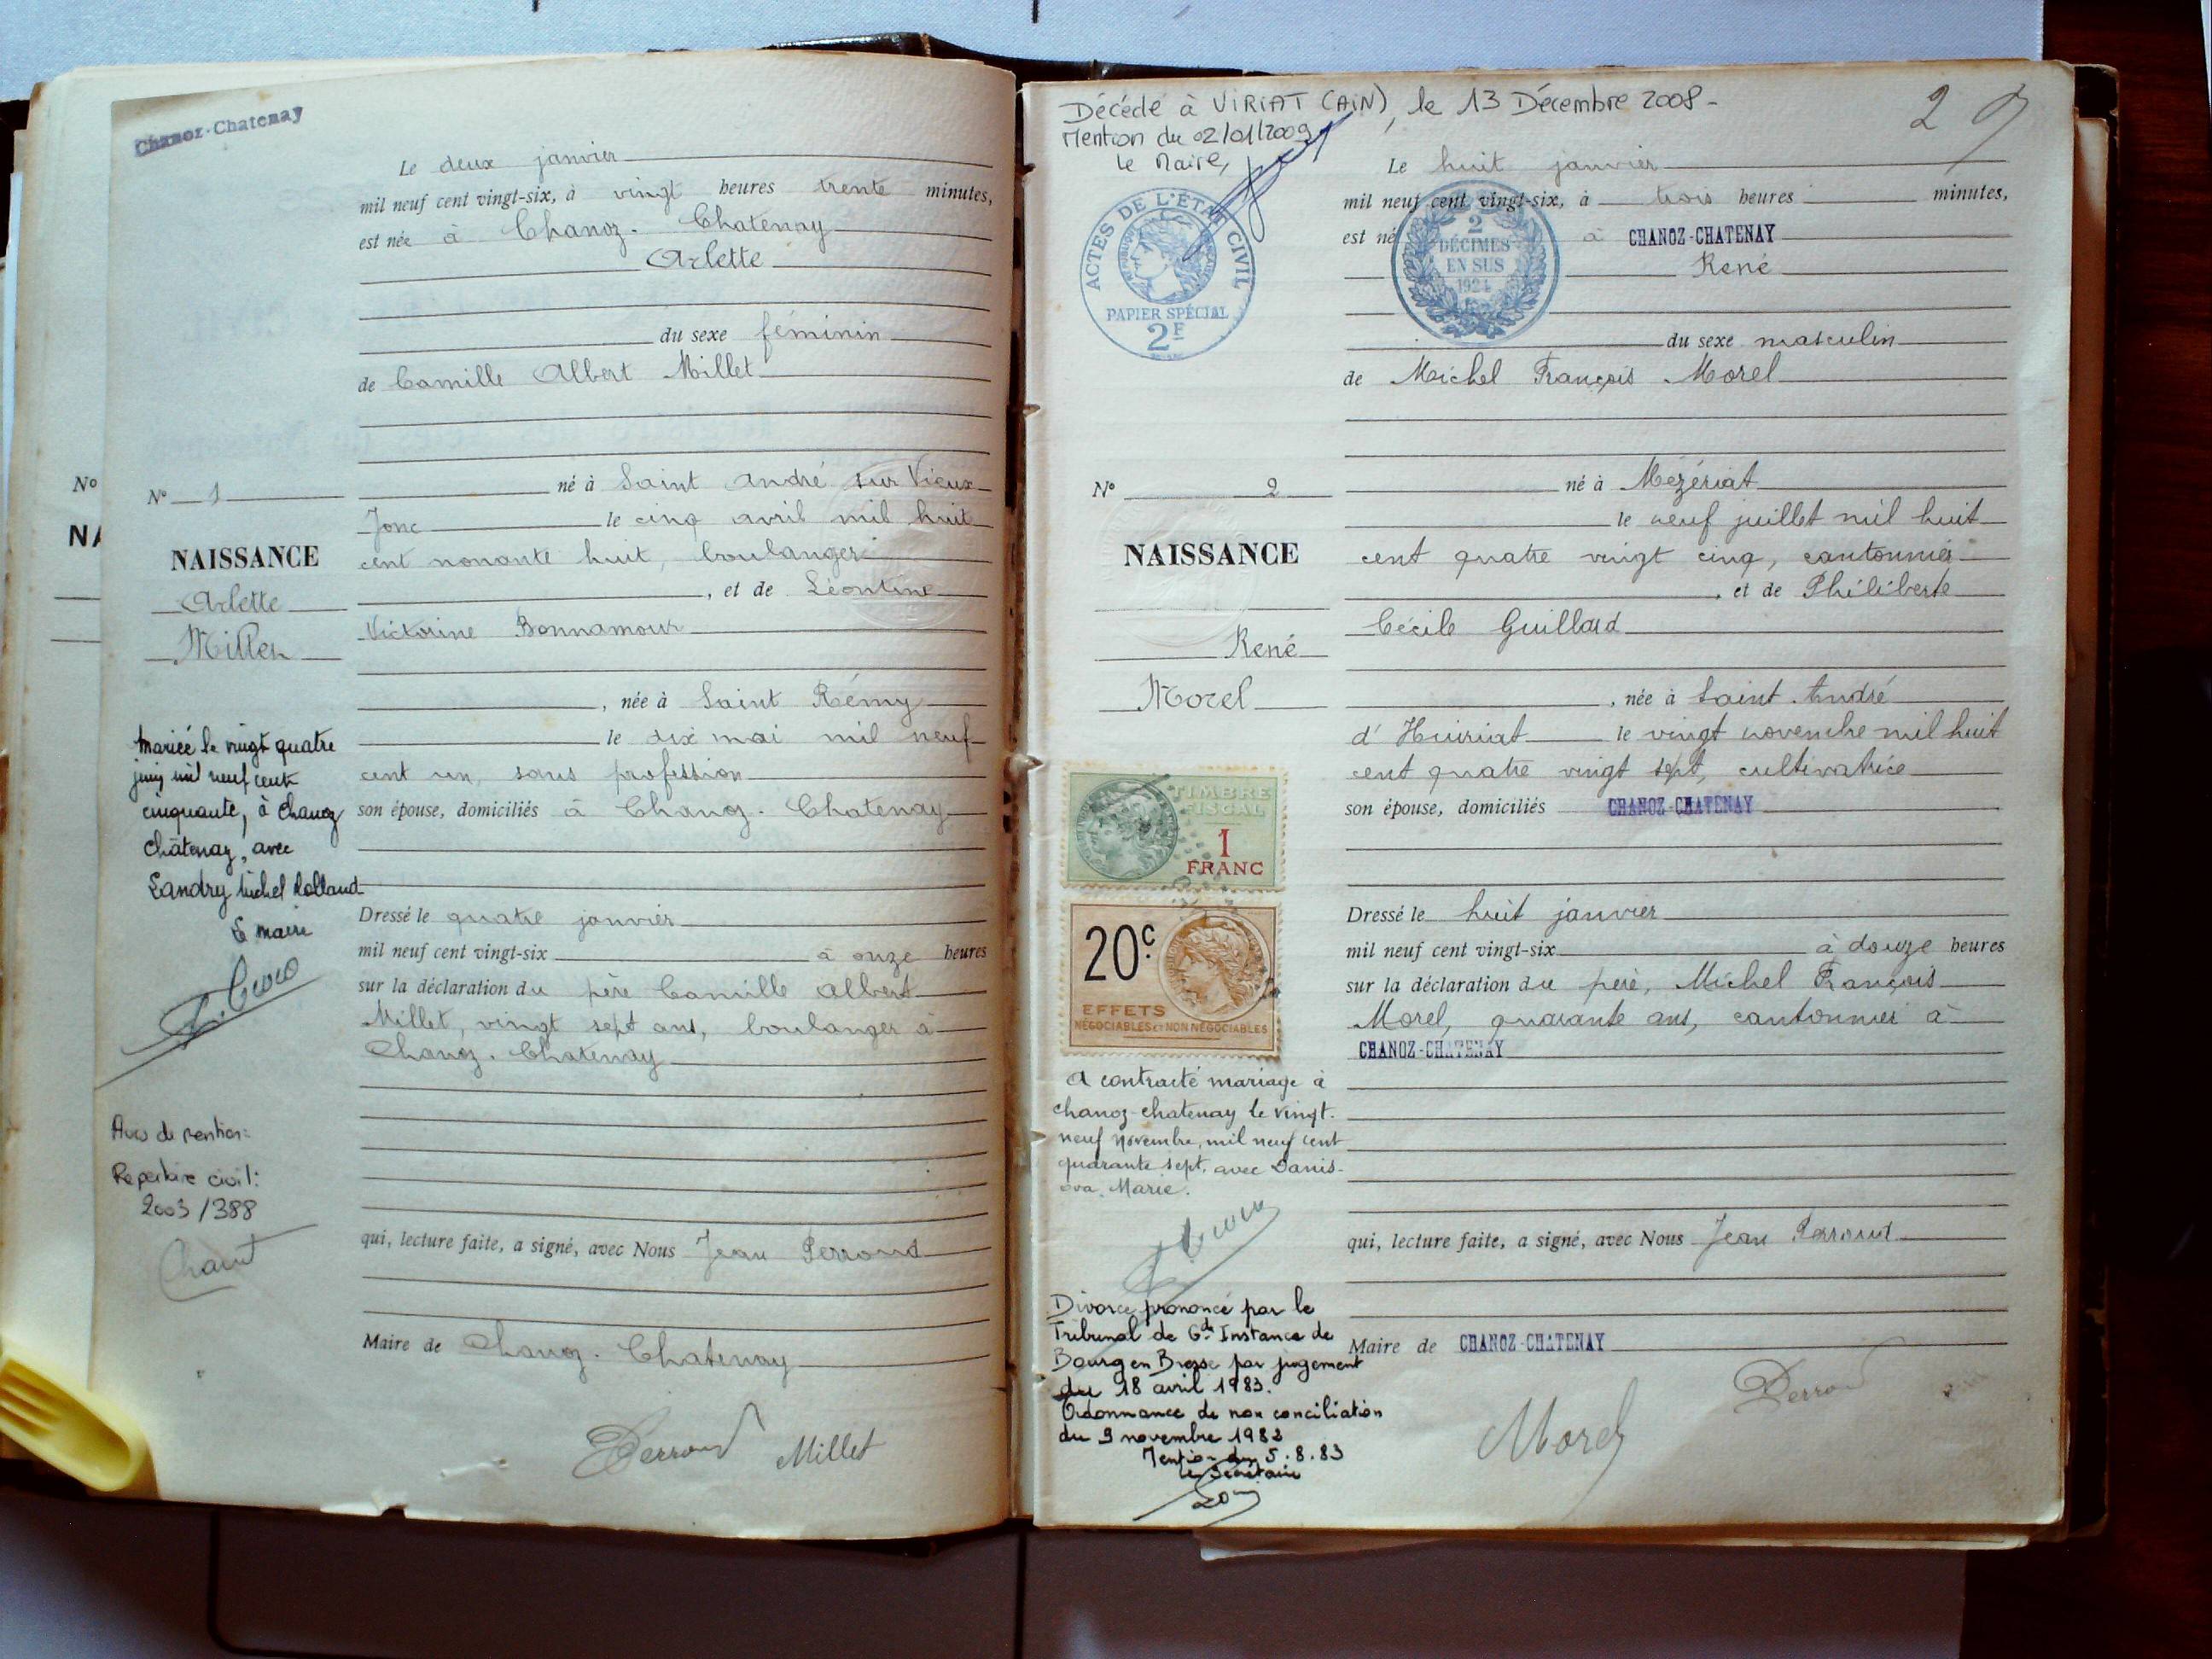 Chanoz-Chatenay
Le deux janvier
mil neuf cent vingt-six, à vingt heures trente minutes,
est née à Chanoz-Chatenay
Arlette
du sexe féminin
de Camille Albert Millet
né à Saint André sur Vieux
Jonc le cinq avril mil huit
cent nonante huit, boulanger
, et de Léontine
Victorine Bonnamour
, née à Saint Rémy
le dix mai mil neuf
cent un, sans profession
son épouse, domiciliés à Chanoz-Chatenay
Dressé le quatre janvier
mil neuf cent vingt-six à onze heures
sur la déclaration du père Camille Albert
Millet, vingt sept ans, boulanger à
Chanoz-Chatenay
qui, lecture faite, a signé, avec Nous Jean Perroud
Maire de Chanoz-Chatenay
Perroud Millet
No
NA
No 1
NAISSANCE
Arlette
Millet
Mariée le vingt quatre
juin mil neuf cent
cinquante, à Chanoz
Châtenay, avec
Landry Michel Rolland
Le maire
Avis de mention:
Repertoire civil:
2003/388
Décédé à VIRIAT (AIN), le 13 Décembre 2008-
Mention du 02/01/2009
Le Maire,
2
ACTES DE L'ÉTAT CIVIL
PAPIER SPÉCIAL
2F
2
DÉCIMES
EN SUS
1924
Le huit janvier
mil neuf cent vingt-six, à trois heures minutes,
est né à CHANOZ-CHATENAY
René
du sexe masculin
de Michel François Morel
né à Mézériat
le neuf juillet mil huit
cent quatre vingt cinq, cantonnier
, et de Philiberte
Cécile Guillard
, née à Saint André
d'Huiriat le vingt novembre mil huit
cent quatre vingt sept, cultivatrice
son épouse, domiciliés CHANOZ-CHATENAY
Dressé le huit janvier
mil neuf cent vingt-six à douze heures
sur la déclaration du père, Michel François
Morel, quarante ans, cantonnier à
CHANOZ-CHATENAY
qui, lecture faite, a signé, avec Nous Jean Perroud
Maire de CHANOZ-CHATENAY
Morel Perroud
No 2
NAISSANCE
René
Morel
TIMBRE
FISCAL
1
FRANC
20c
EFFETS
NÉGOCIABLES ET NON NÉGOCIABLES
A contracté mariage à
Chanoz-Chatenay le vingt-
neuf Novembre, mil neuf cent
quarante sept. avec Danis-
ova Marie.
Divorce prononcé par le
Tribunal de Gde Instance de
Bourg en Bresse par jugement
du 18 avril 1983.
Ordonnance de non conciliation
du 9 novembre 1982
Mention du 5.8.83
Le Secrétaire